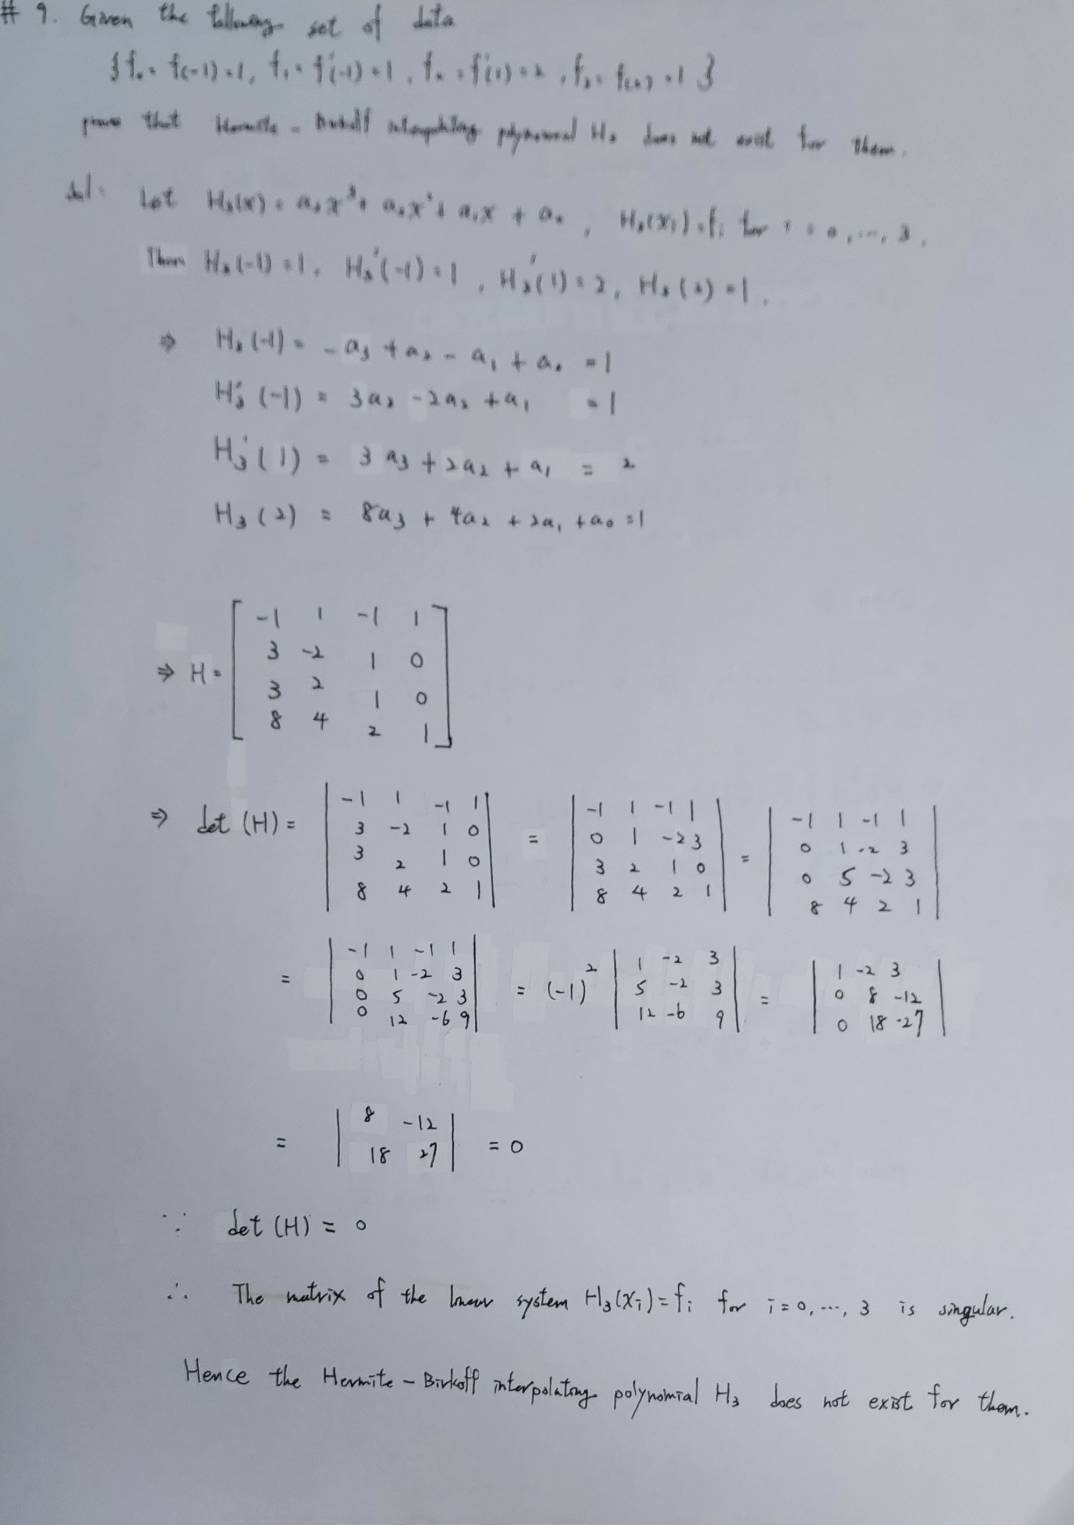 # 9. Given the following set of data
{f₀ = f(-1) = 1, f₁ = f'(-1) = 1, f₂ = f'(1) = 2, f₃ = f(2) = 1}
prove that Hermite - Birkoff interpolating polynomial H₃ does not exist for them.
Sol: Let H₃(x) = a₃x³ + a₂x² + a₁x + a₀, H₃(xᵢ) = fᵢ for i = 0, ..., 3.
Then H₃(-1) = 1, H₃'(-1) = 1, H₃'(1) = 2, H₃(2) = 1.
⇒ H₃(-1) = -a₃ + a₂ - a₁ + a₀ = 1
H₃'(-1) = 3a₃ - 2a₂ + a₁ = 1
H₃'(1) = 3a₃ + 2a₂ + a₁ = 2
H₃(2) = 8a₃ + 4a₂ + 2a₁ + a₀ = 1
-1 1 -1 1
3 -2 1 0
⇒ H =
3 2 1 0
8 4 2 1
⇒ det(H) = | -1 1 -1 1 | = | -1 1 -1 1 | = | -1 1 -1 1 |
| 3 -2 1 0 | | 0 1 -2 3 | | 0 1 -2 3 |
| 3 2 1 0 | | 3 2 1 0 | | 0 5 -2 3 |
| 8 4 2 1 | | 8 4 2 1 | | 8 4 2 1 |
= | -1 1 -1 1 | = (-1)² | 1 -2 3 | = | 1 -2 3 |
| 0 1 -2 3 | | 5 -2 3 | | 0 8 -12 |
| 0 5 -2 3 | | 12 -6 9 | | 0 18 -27 |
| 0 12 -6 9 |
= | 8 -12 | = 0
| 18 27 |
∵ det(H) = 0
∴ The matrix of the linear system H₃(xᵢ) = fᵢ for i = 0, ..., 3 is singular.
Hence the Hermite - Birkoff interpolating polynomial H₃ does not exist for them.